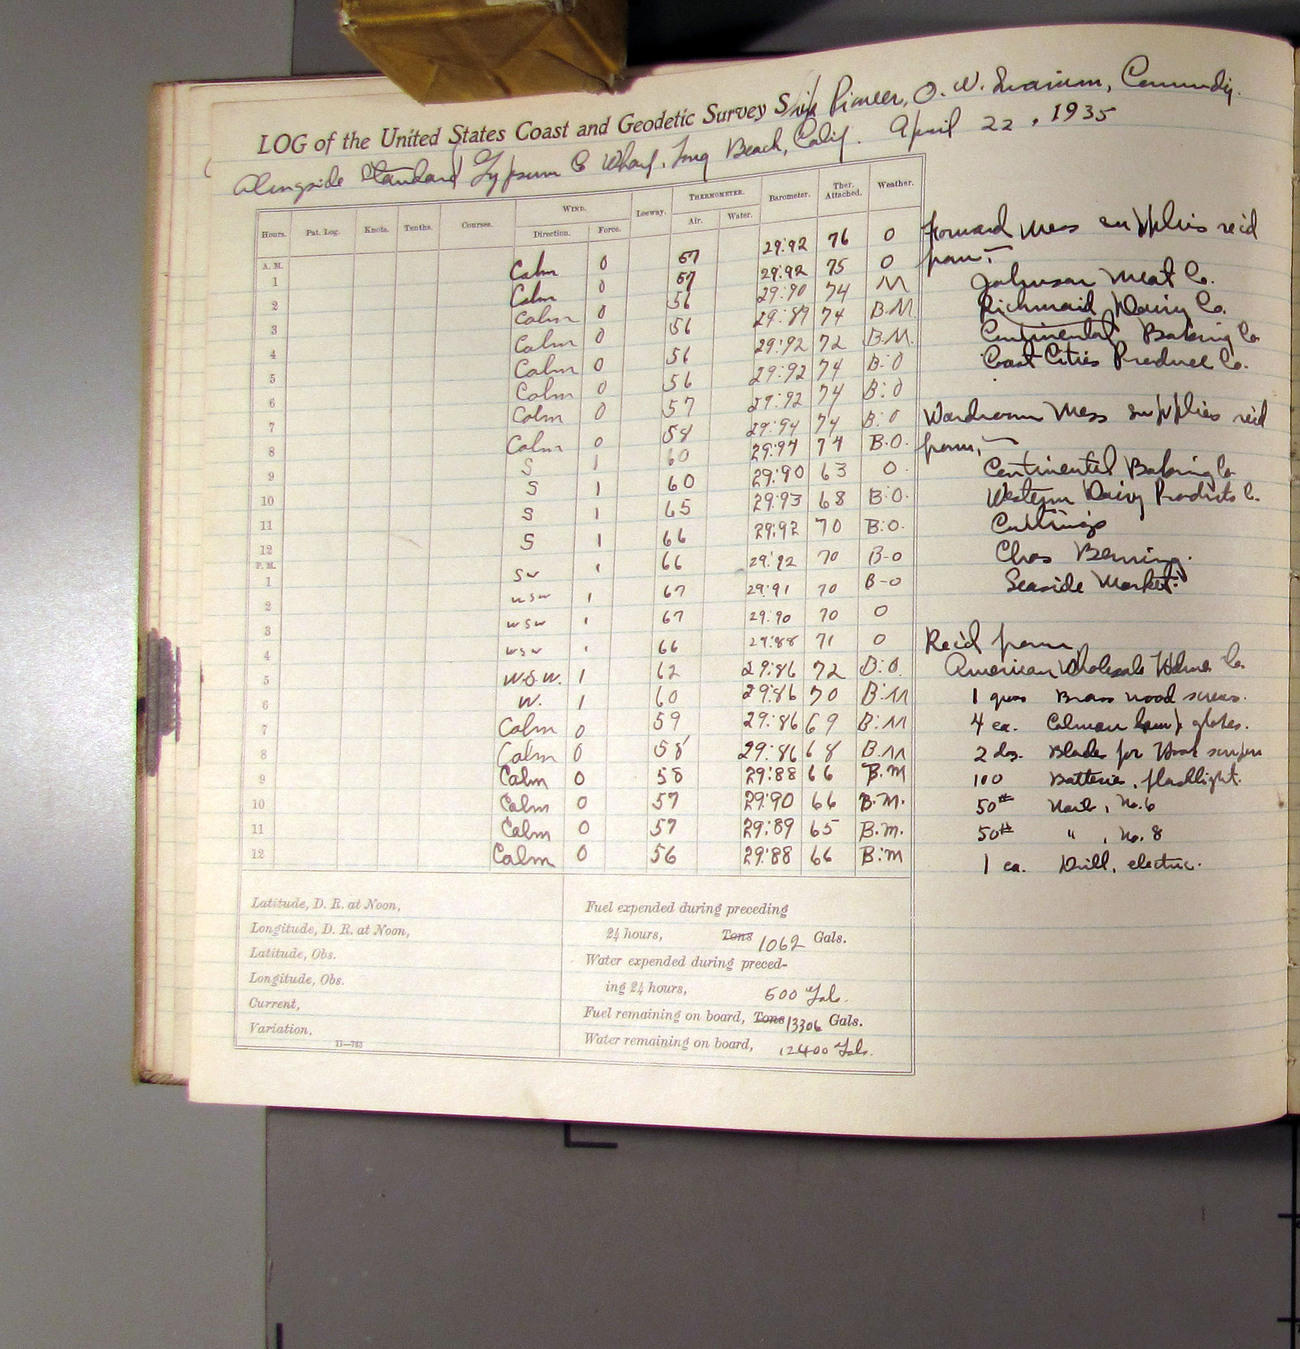 LOG of the United States Coast and Geodetic Survey Ship Pioneer, O. W. Swainson, Comm'dg.
Alongside Standard Gypsum Co Wharf, Long Beach, Calif. April 22, 1935
Hours. Pat. Log. Knots. Tenths. Courses. WIND. Direction. Force. Leeway. THERMOMETER. Air. Water. Barometer. Ther. Attached. Weather.
A. M.
1 Calm 0 57 29:92 76 O
2 Calm 0 57 29:92 75 O
3 Calm 0 56 29:90 74 M
4 Calm 0 56 29:89 74 B.M
5 Calm 0 56 29:92 72 B.M.
6 Calm 0 56 29:92 74 B:O
7 Calm 0 57 29:92 74 B:O
8 Calm 0 58 29:94 74 B:O
9 S 1 60 29:97 74 B.O.
10 S 1 60 29:90 63 O.
11 S 1 65 29:93 68 B:O.
12 S 1 66 29:92 70 B:O.
P. M.
1 SW 1 66 29:92 70 B-O
2 WSW 1 67 29:91 70 B-O
3 WSW 1 67 29:90 70 O
4 WSW 1 66 29:88 71 O
5 W.S.W. 1 62 29:86 72 B:O.
6 W. 1 60 29:86 70 B:M
7 Calm 0 59 29:86 69 B:M
8 Calm 0 58 29:86 68 B.M
9 Calm 0 58 29:88 66 B.M
10 Calm 0 57 29:90 66 B.M.
11 Calm 0 57 29:89 65 B.M.
12 Calm 0 56 29:88 66 B:M
Forward Mess supplies rec'd
from:—
Johnson Meat Co.
Richmaid Dairy Co.
Continental Baking Co
Coast Cities Produce Co.
Wardroom Mess supplies rec'd
from,—
Continental Baking Co
Western Dairy Products Co.
Cuttings
Chas Berning.
Seaside Market.
Rec'd from,
American Wholesale Hdwe Co.
1 gros Brass wood screws.
4 ea. Colman lamp globes.
2 dz. Blades for
100 Batteries, flashlight.
50# Nails, No. 6
50# " , No. 8
1 ea. Drill, electric.
Latitude, D. R. at Noon,
Longitude, D. R. at Noon,
Latitude, Obs.
Longitude, Obs.
Current,
Variation,
11—763
Fuel expended during preceding
24 hours, Tons 1062 Gals.
Water expended during preced-
ing 24 hours, 600 Gals.
Fuel remaining on board, Tons 13306 Gals.
Water remaining on board, 12400 Gals.